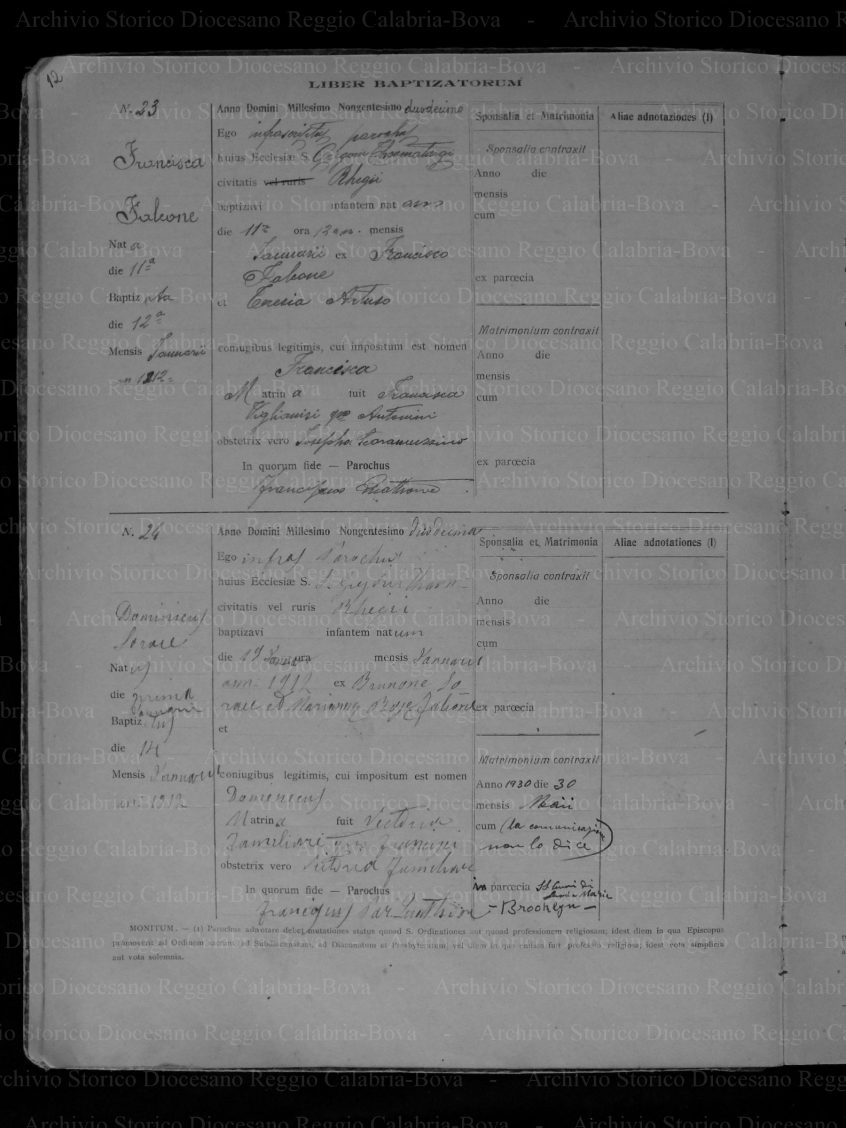 12
LIBER BAPTIZATORUM
N. 23
Francisca
Falcone
Nat a
die 11ª
Baptiz ata
die 12ª
Mensis Januarii
1912
Anno Domini Millesimo Nongentesimo duodecimo
Ego infrascriptus parochus
huius Ecclesiæ S. Gregorii Thaumaturgi
civitatis vel ruris Rhegii
baptizavi infantem nat am
die 11ª ora 12 mensis
Januarii ex Francisco
Falcone
et Teresia Artuso
coniugibus legitimis, cui impositum est nomen
Francisca
Matrina fuit Francisca
Viglianisi Antonini
obstetrix vero Josepha Scaramuzzino
In quorum fide — Parochus
Franciscus Quattrone
Sponsalia et Matrimonia
Sponsalia contraxit
Anno die
mensis
cum
ex parœcia
Matrimonium contraxit
Anno die
mensis
cum
ex parœcia
Aliae adnotaziones (I)
N. 24
Dominicus
Sorace
Nat us
die prima
Baptiz atus
die 14
Mensis Januarii
1912
Anno Domini Millesimo Nongentesimo duodecimo
Ego infras Parochus
huius Ecclesiæ S. Gregorii Thaum
civitatis vel ruris Rhegii
baptizavi infantem natum
die mensis Januarii
1912 ex Brunone So
race et
et
coniugibus legitimis, cui impositum est nomen
Domenicus
Matrina fuit Victoria
Familiari Francisci
obstetrix vero Victoria Familiari
In quorum fide — Parochus
Franciscus Par Quattrone
Sponsalia et Matrimonia
Sponsalia contraxit
Anno die
mensis
cum
ex parœcia
Matrimonium contraxit
Anno 1930 die 30
mensis Maii
cum (la comunicazione
non lo dice)
in parœcia SS Cuori di
Gesù e Maria
- Brooklyn -
Aliae adnotationes (I)
MONITUM. — (1) Parochus adnotare debet mutationes status quoad S. Ordinationes aut quoad professionem religiosam, idest diem in qua Episcopus
promoverit ad Ordinem sacrum, ad Subdiaconatum, ad Diaconatum et Presbyteratum, vel diem in quo emissa fuit professio religiosa, idest vota simplicia
aut vota solemnia.
Archivio Storico Diocesano Reggio Calabria-Bova